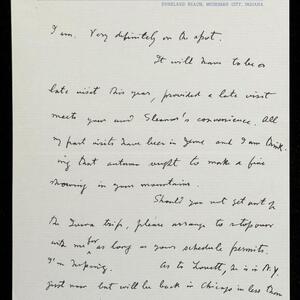 DUNELAND BEACH, MICHIGAN CITY, INDIANA
I am. Very definitely on the spot.
It will have to be a
late visit this year, provided a late visit
meets your and Eleanor's convenience. All
my past visits have been in June and I am think-
ing that autumn ought to make a fine
showing in your mountains.
Should you not get out of
the Iowa trip, please arrange to stopover
with me for as long as your schedule permits.
I'm hoping. As to Lovett, he is in N.Y.
just now but will be back in Chicago in less than